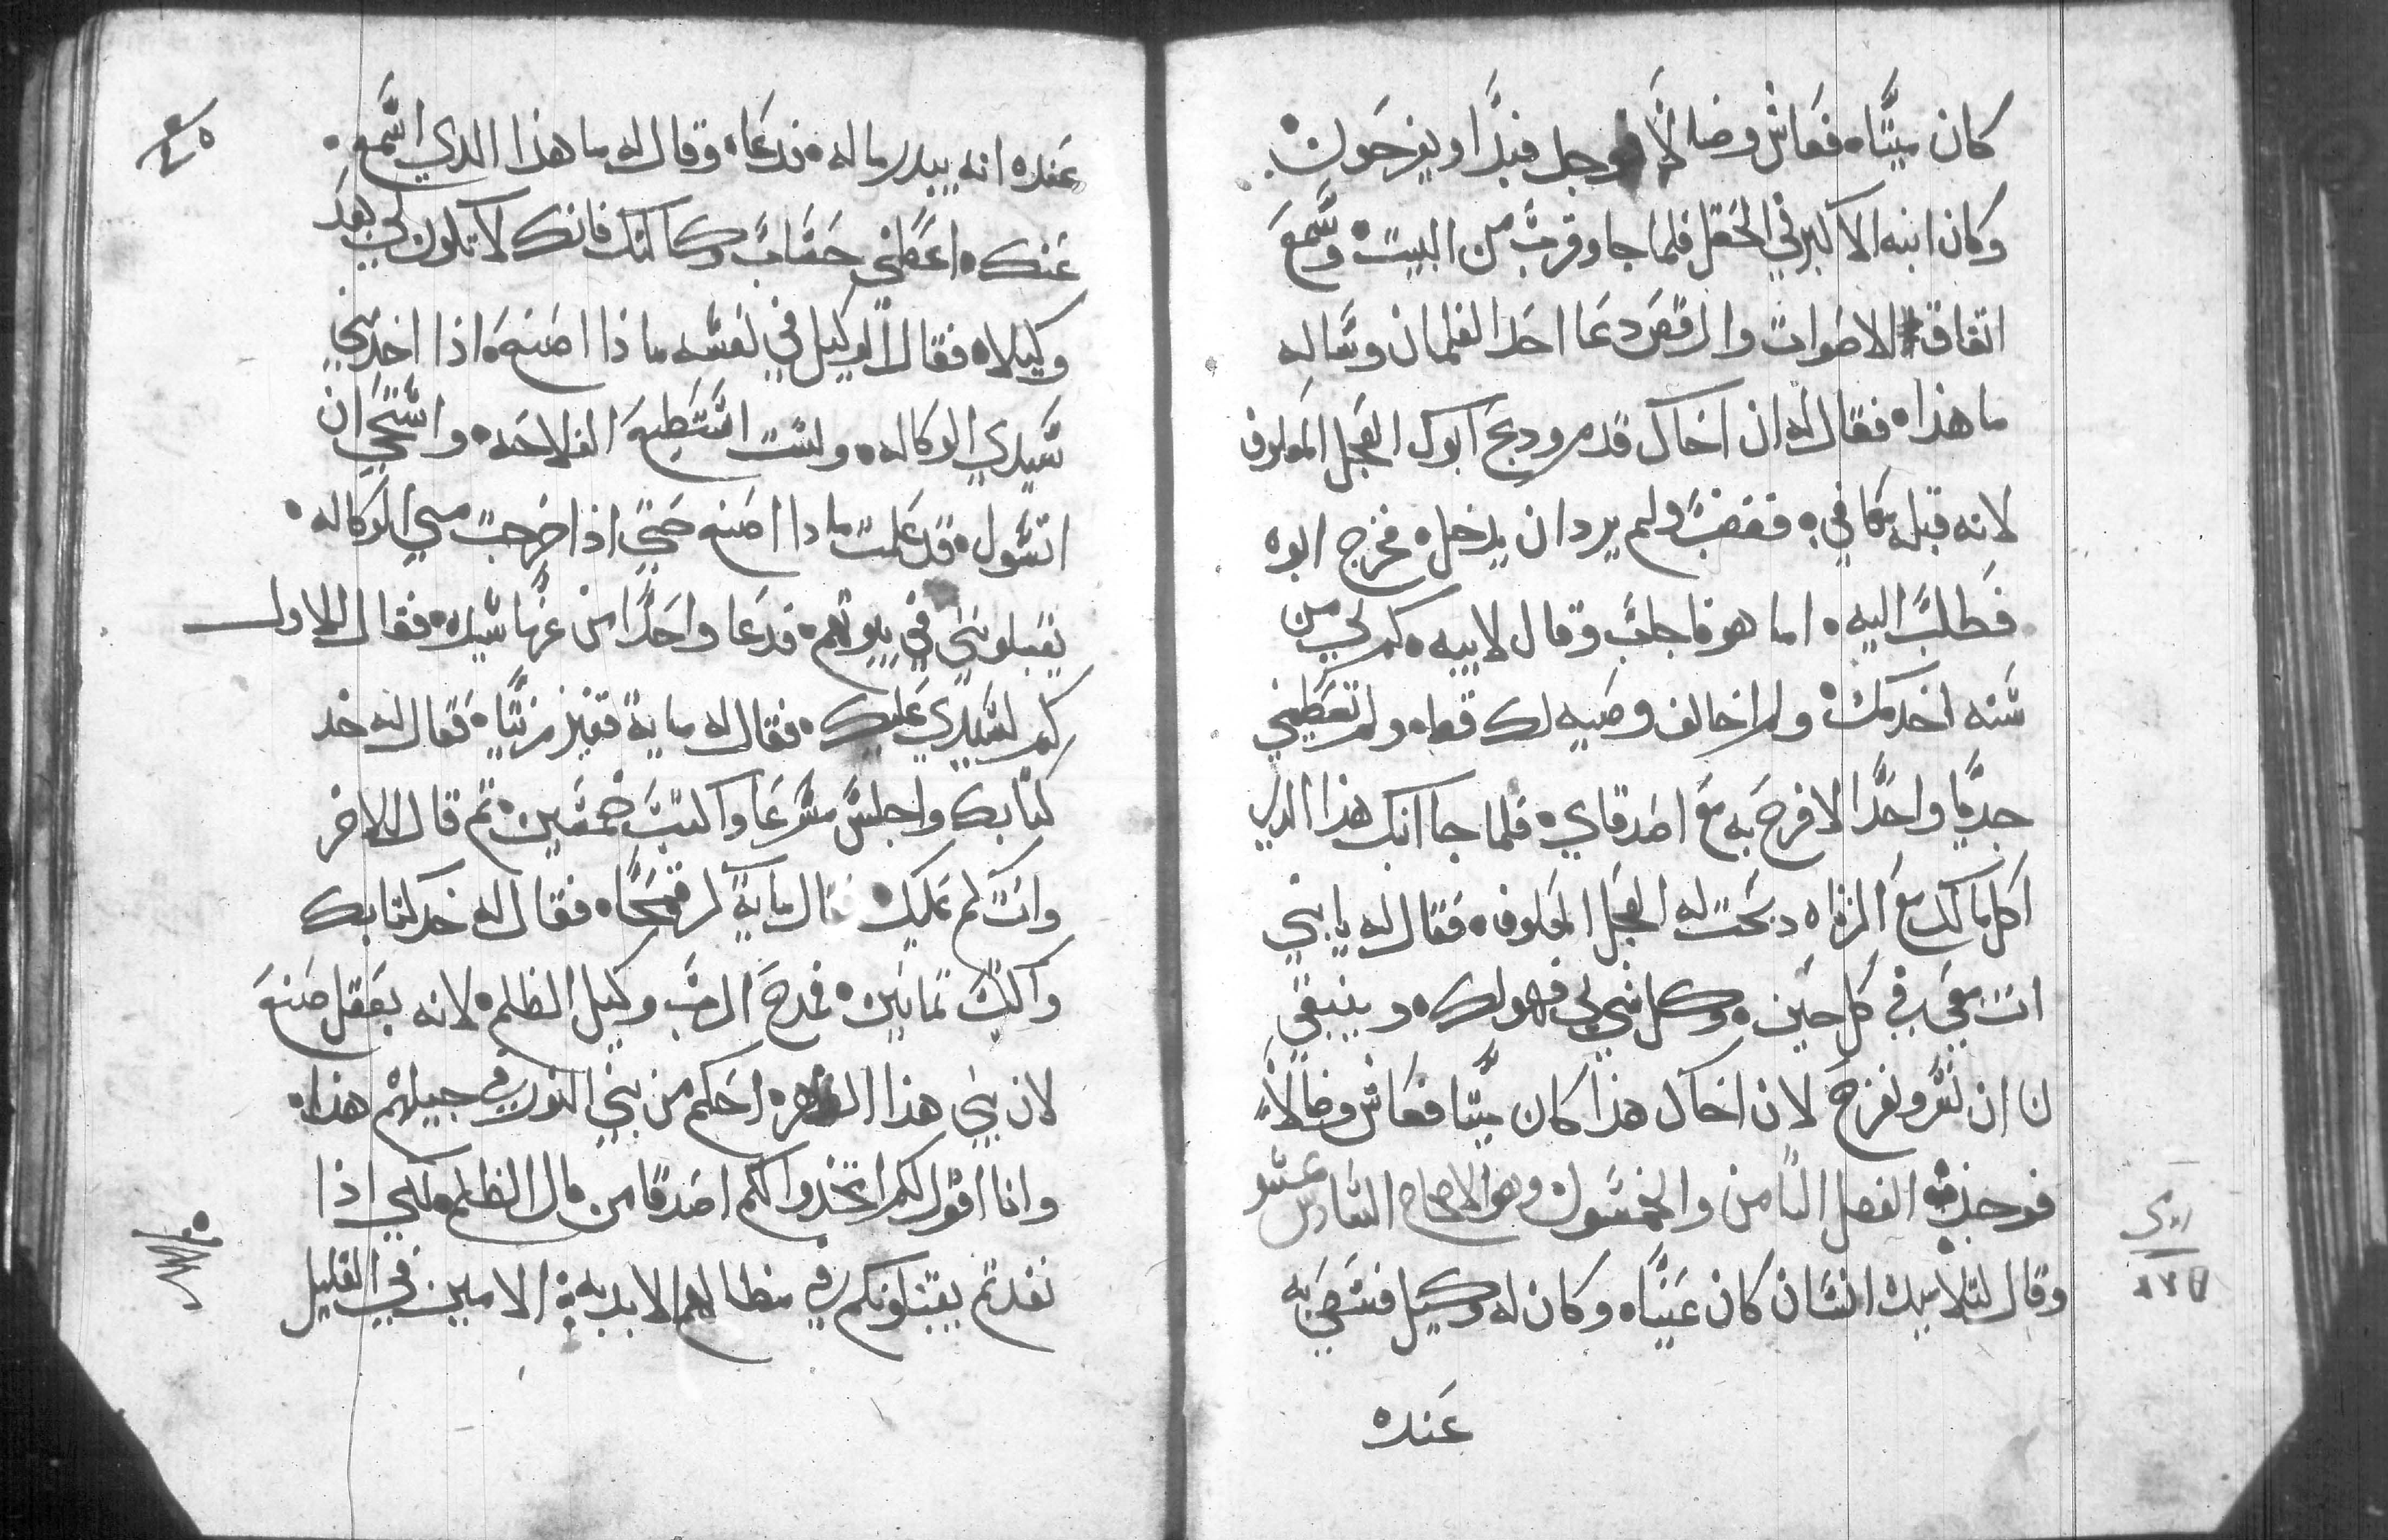 كان ميتًا ه فعاش وضالًا فوجل فبدا و يفرحون ه
وكان ابنه الاكبر في الحقل فلما جا وقرب من البيت ه وسمع
اتفاق الاصوات والرقص دعا احد الغلمان وساله
ما هذا ه فقال له ان اخاك قدم ودبح ابوك العجل المعلوف
لانه قبله معافي ه فغضب ولم يرد ان يدخل ه فخرج ابوه
فطلب اليه ه اما هو فاجاب وقال لابيه ه كم لي من
سنه اخدمك ه ولم اخالف وصيه لك قط ه ولم تعطيني
جديًا واحدًا لافرح به مع اصدقاي ه فلما جا ابنك هذا الدي
اكل مالك مع الزناه دبحت له العجل المعلوف ه فقال له يا بني
انت معي في كل حين ه وكل شي لي فهو لك ه وينبغي
لنا ان نسر ونفرح لان اخاك هذا كان ميتا فعاش وضالًا
فوجد ه الفصل الثامن والخمسون وهو الاصحاح السادس عشر
وقال لتلاميده انسان كان غنيًا ه وكان له وكيل فسعي به
عنده
٤٥
عنده انه يبدر ماله ه فدعاه وقال له ما هذا الدي اسمع ه
عنك ه اعطني حساب وكالتك فانك لا تكون لي بعد
وكيلا ه فقال الوكيل في نفسه ما ذا اصنع ه اذا اخد مني
سيدي الوكاله ه ولست استطيع الفلاحه ه واستحي ان
اتسول ه قد علمت ما دا اصنع حتي اذا خرجت مني الوكاله ه
يقبلوني في بيوتهم ه فدعا واحدًا من غرما سيده ه فقال للاول
كم لسيدي عليك ه فقال له ماية قفيز زيتًا ه فقال له خد
كتابك واجلس مسرعا واكتب خمسين ه تم قال للاخر
وانت كم عليك ه فقال ماية كر قمحًا ه فقال له خد كتابك
واكتب تمانين ه فمدح الرب وكيل الظلم ه لانه بعقل صنع
لان بني هذا الدهر ه احكم من بني النور في جيلهم هذا ه
وانا اقول لكم اتخدوا لكم اصدقا من مال الظلم ه لكي اذا
نفدتم يقبلونكم في مظالهم الابديه ه الامين في القليل